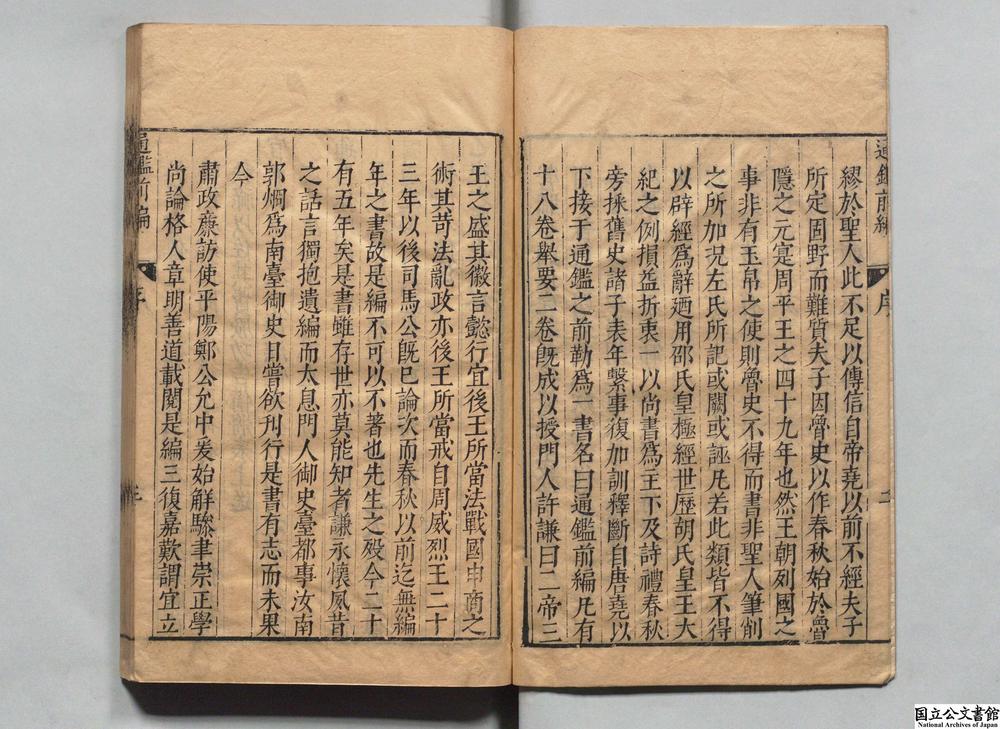 通鑑前編
序
二
繆於聖人此不足以傳信自帝堯以前不經夫子
所定固野而難質夫子因魯史以作春秋始於魯
隱之元寔周平王之四十九年也然王朝列國之
事非有玉帛之使則魯史不得而書非聖人筆削
之所加况左氏所記或闕或誣凡若此類皆不得
以辟經為辭廼用邵氏皇極經世歷胡氏皇王大
紀之例損益折衷一以尚書為王下及詩禮春秋
旁採舊史諸子表年繫事復加訓釋斷自唐堯以
下接于通鑑之前勒為一書名曰通鑑前編凡有
十八卷舉要二卷既成以授門人許謙曰二帝三
王之盛其徽言懿行宜後王所當法戰國申商之
術其苛法亂政亦後王所當戒自周威烈王二十
三年以後司馬公既已論次而春秋以前迄無編
年之書故是編不可以不著也先生之歿今二十
有五年矣是書雖存世亦莫能知者謙永懷夙昔
之話言獨抱遺編而太息門人御史臺都事汝南
郭炯為南臺御史日嘗欲刋行是書有志而未果
今
肅政廉訪使平陽鄭公允中爰始觧驂聿崇正學
尚論格人章明善道載閱是編三復嘉歎謂宜立
通鑑前編
序
国立公文書館
National Archives of Japan